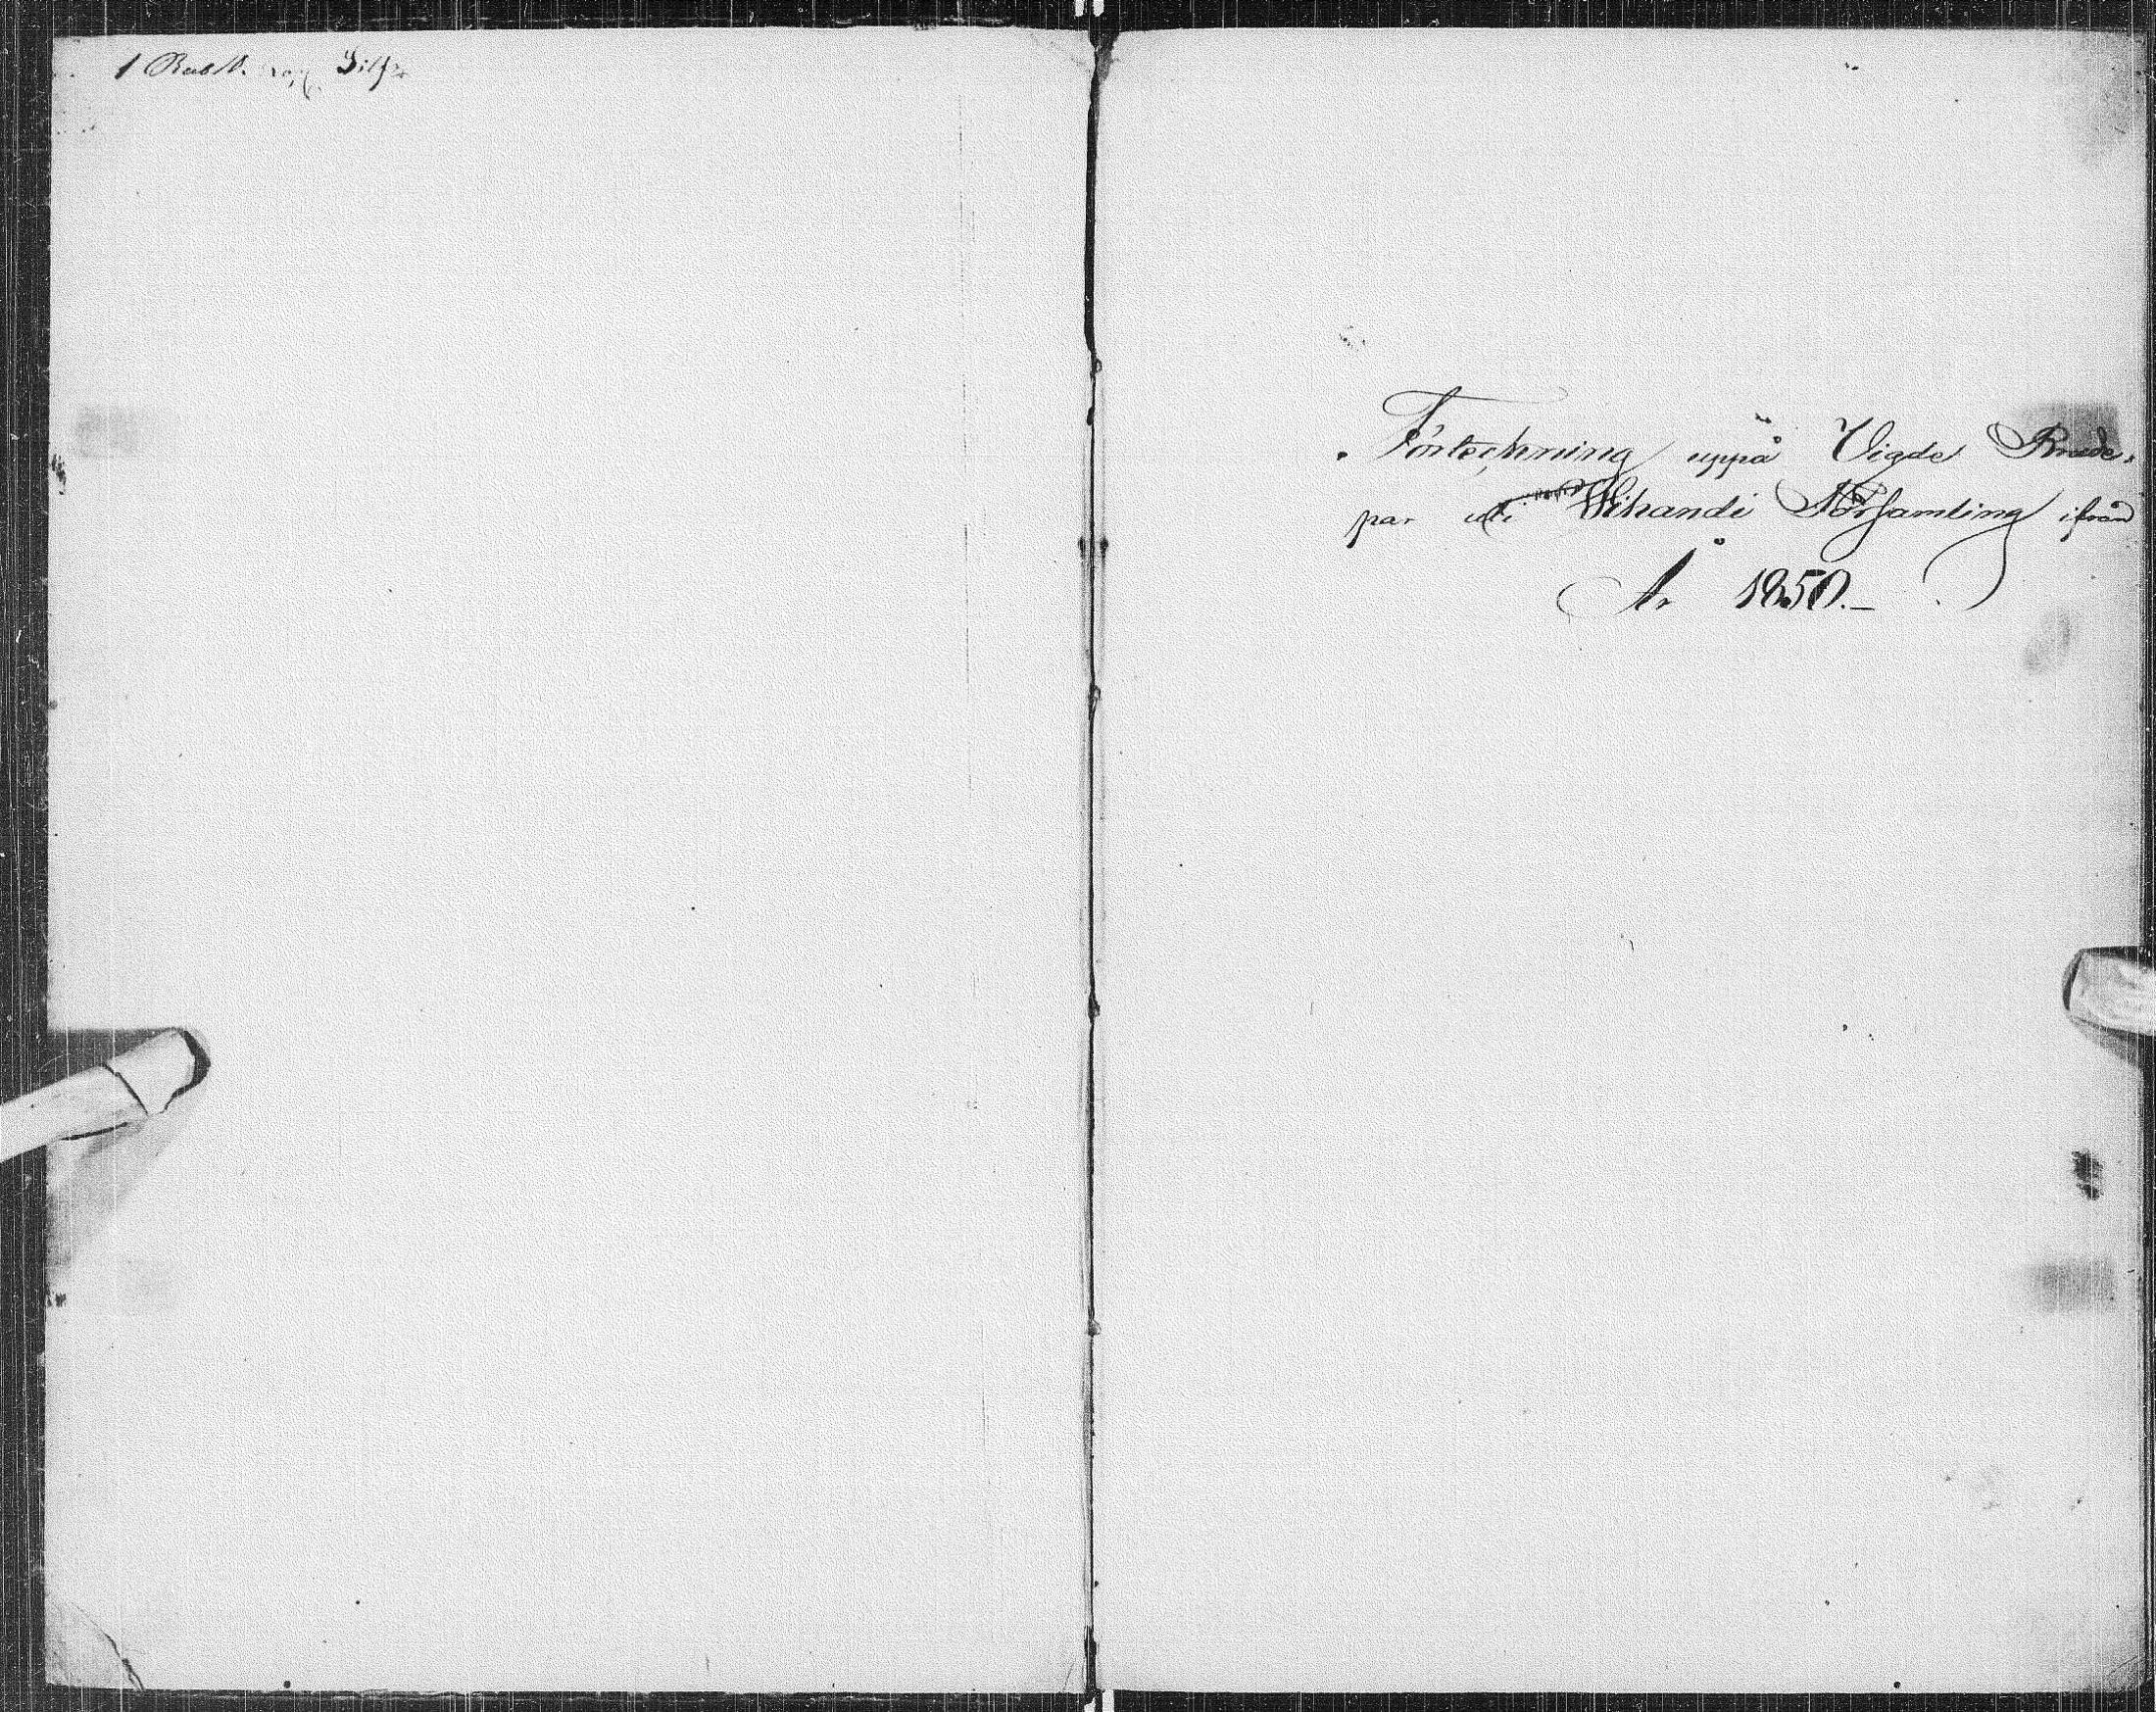 1 Rub.
Silf
Förteckning uppå Vigde Brude-
par uti Wihandi Församling ifrån
År 1850.